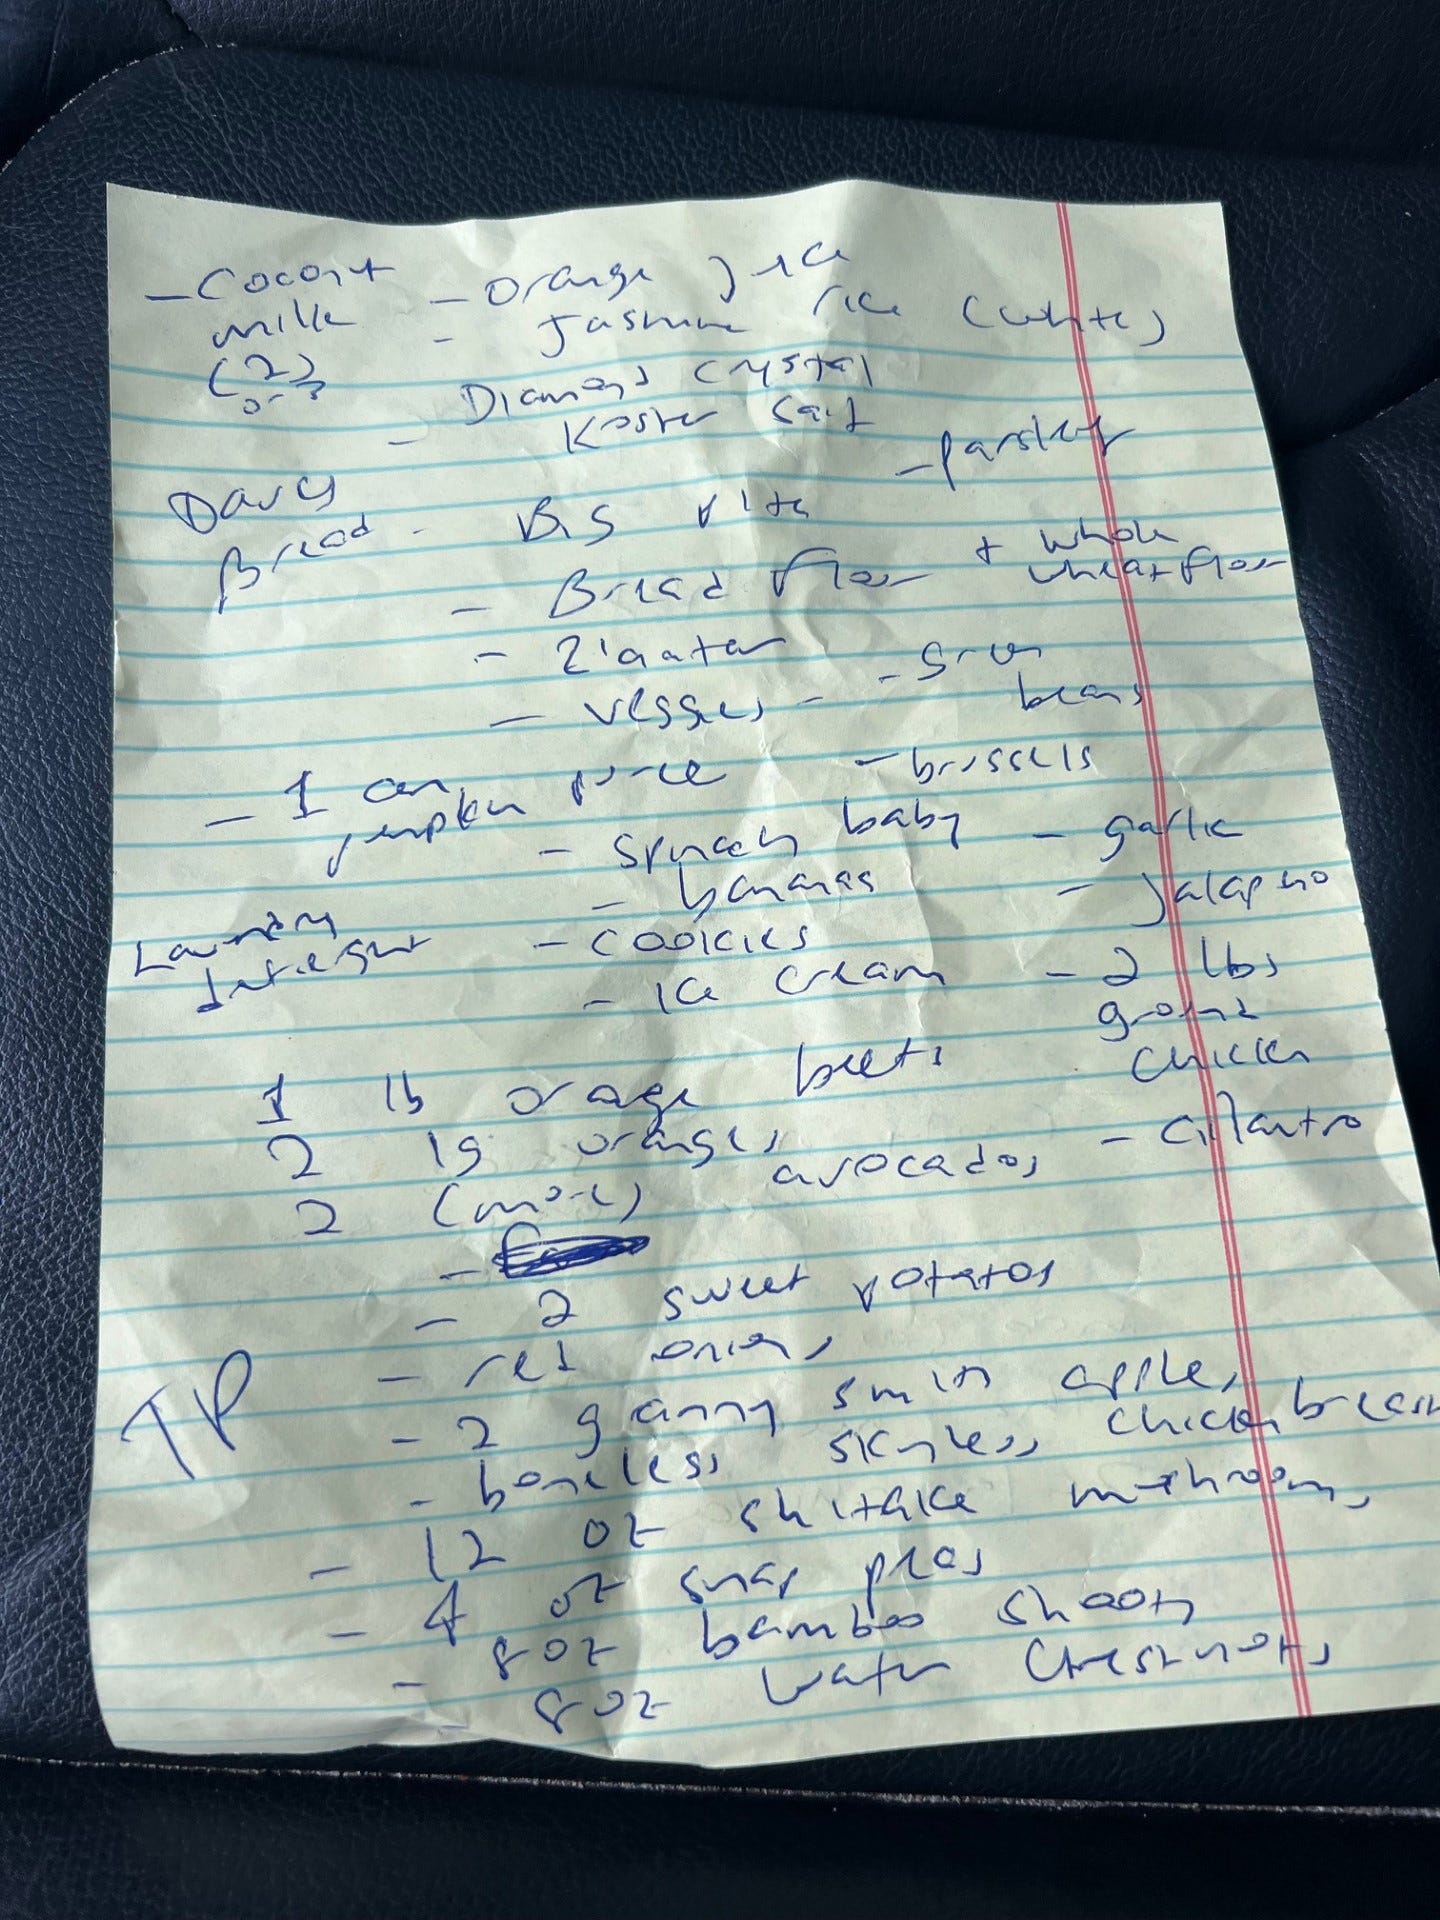 - Coconut milk (2) or 3
- Orange juice
- Jasmine rice (white)
- Diamond crystal
Kosher salt
- parsley
Daves
Bread
- Big pita
- Bread flour + whole
wheat flour
- Za'atar
- veggies - - green
beans
- 1 can
pumpkin puree
- brussels
- spinach baby
- garlic
- bananas
- jalapeno
Laundry
detergent
- cookies
- ice cream
- 2 lbs
ground
chicken
1 lb orange beets
2 lg oranges
- cilantro
2 (more) avocados
-
- 2 sweet potatos
- red onions
TP
- 2 granny smith apples
- boneless skinless chicken breast
- 12 oz shitake mushrooms
- 4 oz snap peas
8 oz bamboo shoots
- 8 oz water chestnuts